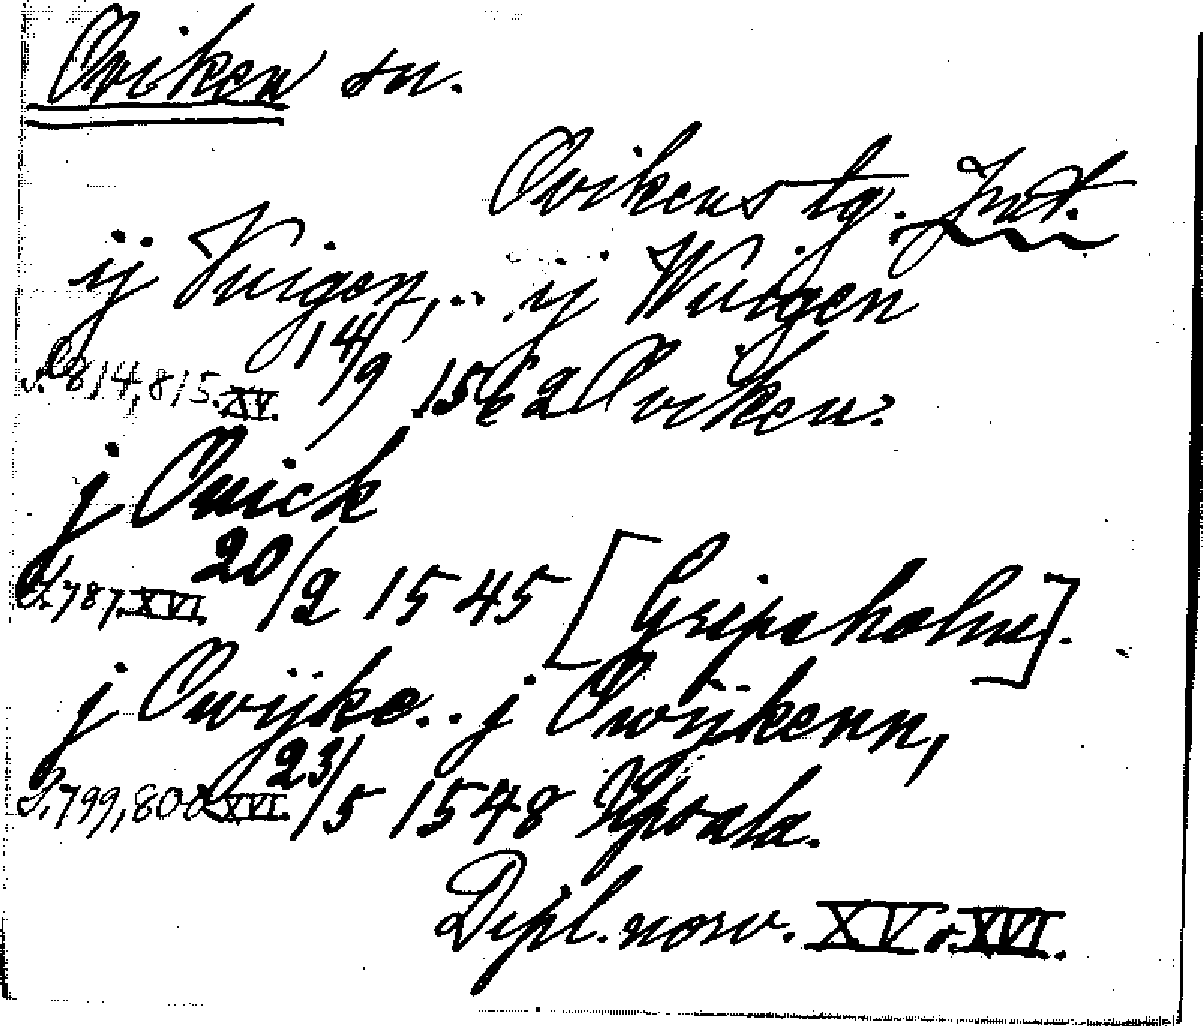 Oviken sn.
Ovikens tg. Jmt.
ij Vuigen, .. ij Wuigen
s. 814, 815. XV. 14/9 1562 Oviken.
j Ouick
S. 787. XVI. 20/2 1545 [Gripsholm].
j Owijke .. j Owijkenn,
S. 799, 800 XVI. 23/5 1548 Upsala.
Dipl. norv. XV o. XVI.